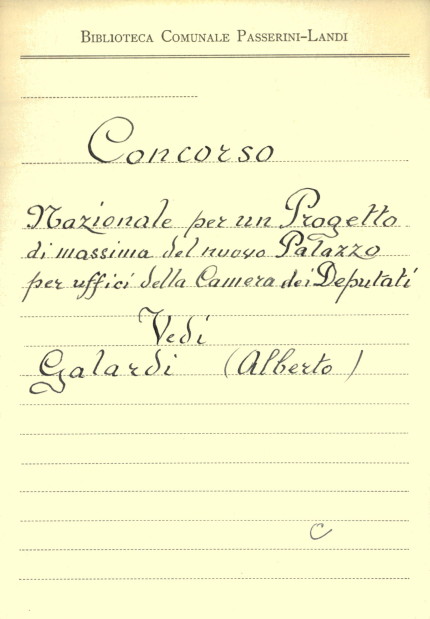 Biblioteca Comunale Passerini-Landi
Concorso
Nazionale per un Progetto
di massima del nuovo Palazzo
per uffici della Camera dei Deputati
Vedi
Galardi (Alberto)
C